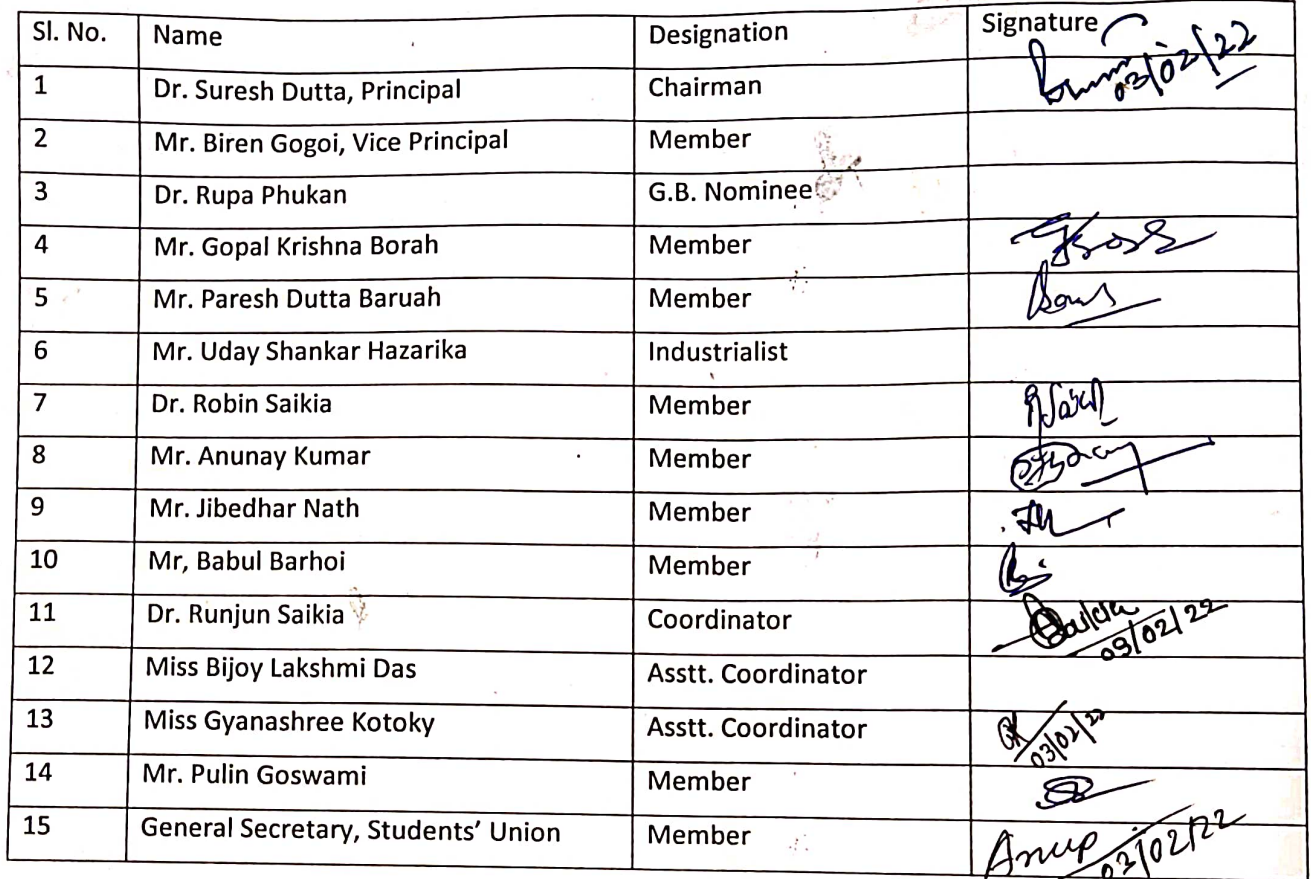 Sl. No. Name Designation Signature
1 Dr. Suresh Dutta, Principal Chairman 03/02/22
2 Mr. Biren Gogoi, Vice Principal Member
3 Dr. Rupa Phukan G.B. Nominee
4 Mr. Gopal Krishna Borah Member
5 Mr. Paresh Dutta Baruah Member
6 Mr. Uday Shankar Hazarika Industrialist
7 Dr. Robin Saikia Member
8 Mr. Anunay Kumar Member
9 Mr. Jibedhar Nath Member
10 Mr, Babul Barhoi Member
11 Dr. Runjun Saikia Coordinator 03/02/22
12 Miss Bijoy Lakshmi Das Asstt. Coordinator
13 Miss Gyanashree Kotoky Asstt. Coordinator GK 03/02/22
14 Mr. Pulin Goswami Member
15 General Secretary, Students’ Union Member Anup 03/02/22